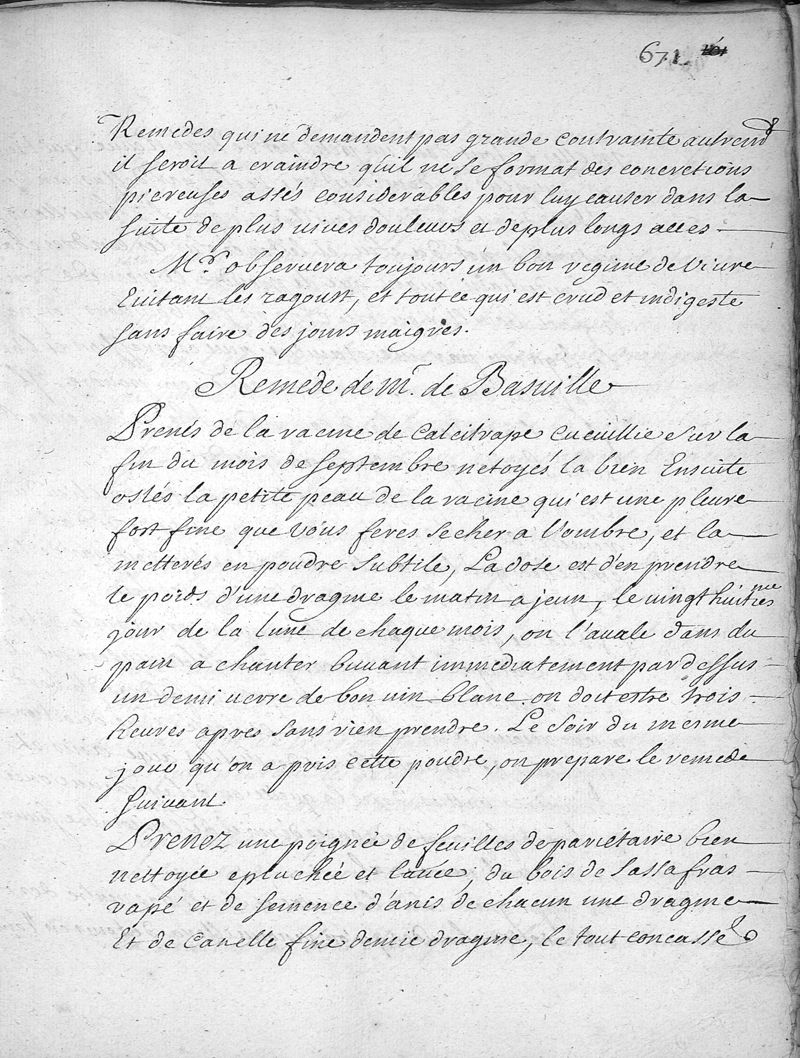 671
Remedes qui ne demandent pas grande contrainte autrem.t
il seroit a craindre qu'il ne se format des concretions
piereuses assés considerables pour luy causer dans la
suite de plus vives douleurs et de plus longs acces.
M.r observera toujours un bon regime de vivre
Evitant les ragoust, et tout ce qui est crud et indigeste
sans faire des jours maigres.
Remede de m.r de Basville
Prenés de la racine de calcitrape cueuillie sur la
fin du mois de septembre netoyés la bien Ensuite
ostés la petite peau de la racine qui est une pleure
fort fine que vous feres secher a l'ombre, et la
metterés en poudre subtile, La dose est d'en prendre
le poids d'une dragme le matin a jeun, le vingt huitiesme
jour de la lune de chaque mois, on l'avale dans du
pain a chanter buvant immediatement par dessus
un demi verre de bon vin blanc. on doit estre trois
heures apres sans rien prendre. Le soir du mesme
jour qu'on a pris cette poudre, on prepare le remede
suivant
Prenez une poignée de feuilles de parietaire bien
nettoyée epluchée et lavée, du bois de sassafras
rapé et de semence d'anis de chacun une dragme
Et de canelle fine demie dragme, le tout concassé